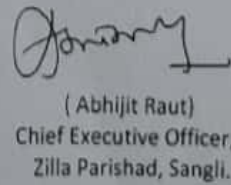 ( Abhijit Raut)
Chief Executive Officer,
Zilla Parishad, Sangli.